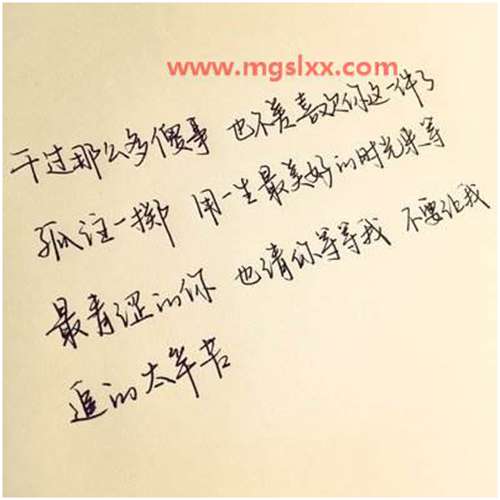 www.mgslxx.com
干过那么多傻事 也不差喜欢你这一件了
孤注一掷 用一生最美好的时光来等
最青涩的你 也请你等等我 不要让我
追的太辛苦